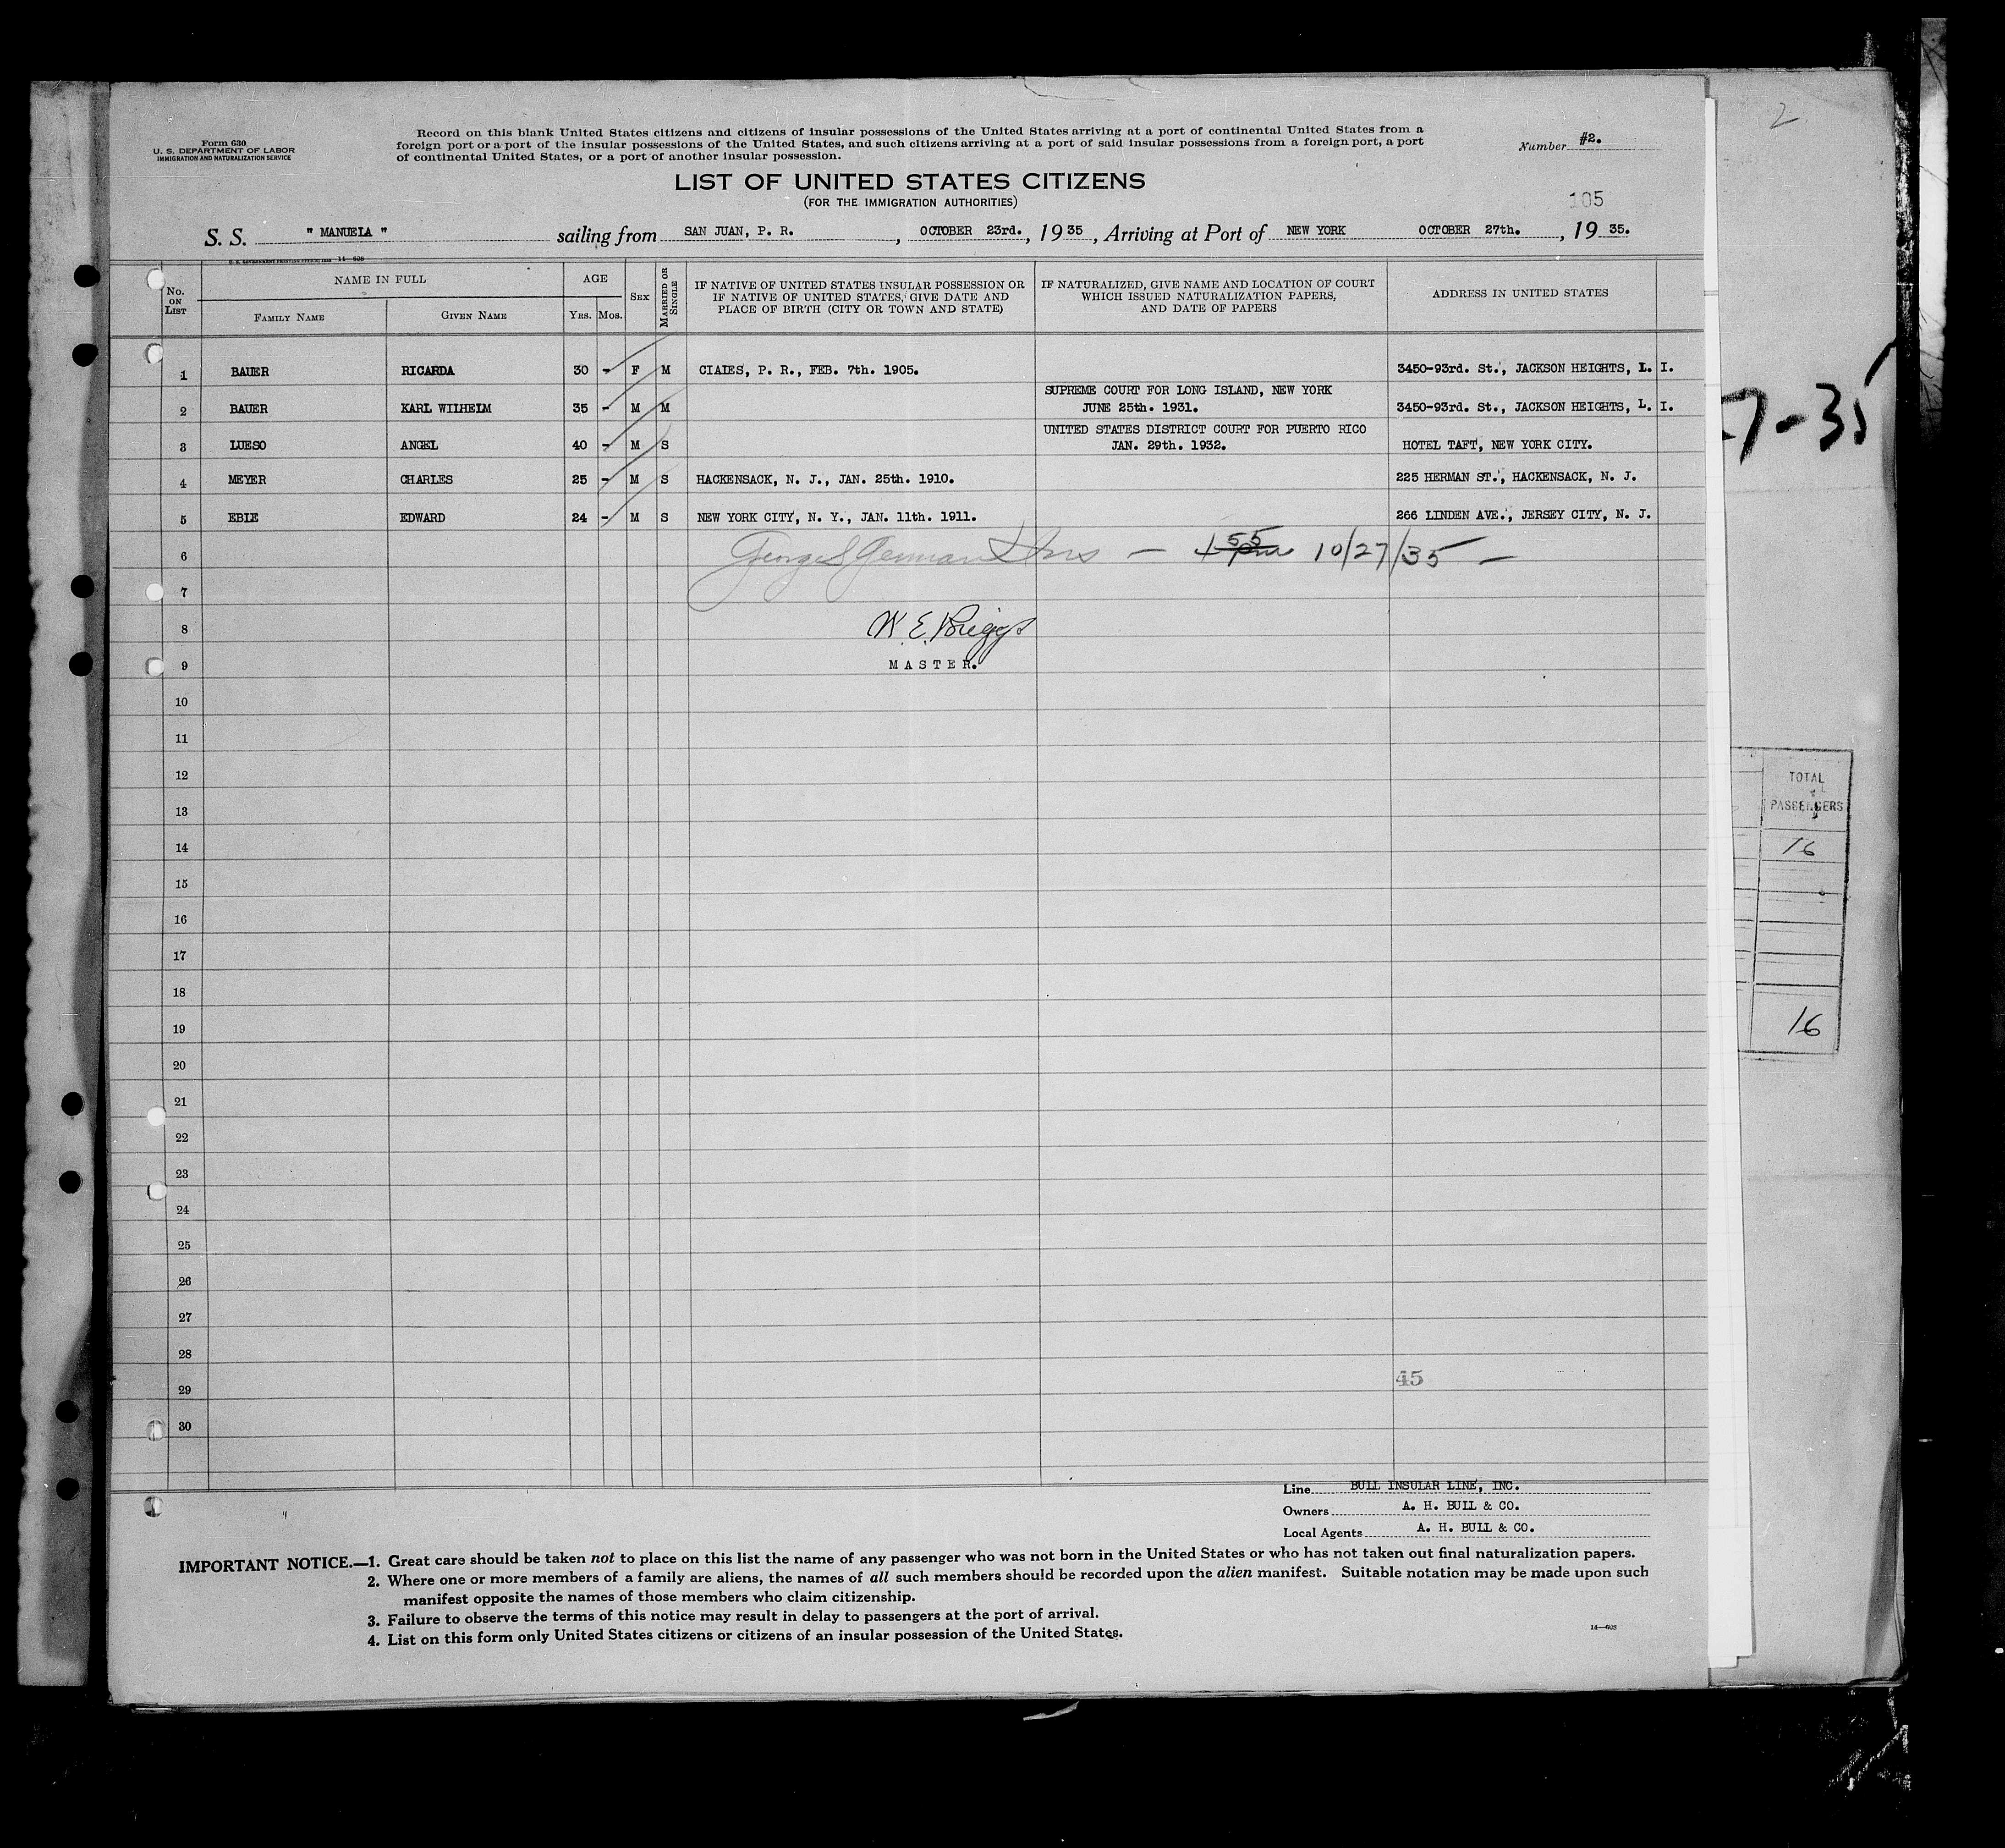 2
Form 630
U. S. DEPARTMENT OF LABOR
IMMIGRATION AND NATURALIZATION SERVICE
Record on this blank United States citizens and citizens of insular possessions of the United States arriving at a port of continental United States from a
foreign port or a port of the insular possessions of the United States, and such citizens arriving at a port of said insular possessions from a foreign port, a port
of continental United States, or a port of another insular possession.
Number #2.
LIST OF UNITED STATES CITIZENS
(FOR THE IMMIGRATION AUTHORITIES)
105
S. S. " MANUELA " sailing from SAN JUAN, P. R. , OCTOBER 23rd. , 1935 , Arriving at Port of NEW YORK OCTOBER 27th. , 1935.
U. S. GOVERNMENT PRINTING OFFICE: 14—608
No. ON LIST
NAME IN FULL
FAMILY NAME
GIVEN NAME
AGE
YRS.
MOS.
SEX
MARRIED OR SINGLE
IF NATIVE OF UNITED STATES INSULAR POSSESSION OR
IF NATIVE OF UNITED STATES, GIVE DATE AND
PLACE OF BIRTH (CITY OR TOWN AND STATE)
IF NATURALIZED, GIVE NAME AND LOCATION OF COURT
WHICH ISSUED NATURALIZATION PAPERS,
AND DATE OF PAPERS
ADDRESS IN UNITED STATES
1 BAUER RICARDA 30 - F M CIALES, P. R., FEB. 7th. 1905. 3450-93rd. St., JACKSON HEIGHTS, L. I.
SUPREME COURT FOR LONG ISLAND, NEW YORK
2 BAUER KARL WILHELM 35 - M M JUNE 25th. 1931. 3450-93rd. St., JACKSON HEIGHTS, L. I.
UNITED STATES DISTRICT COURT FOR PUERTO RICO
3 LUESO ANGEL 40 - M S JAN. 29th. 1932. HOTEL TAFT, NEW YORK CITY.
4 MEYER CHARLES 25 - M S HACKENSACK, N. J., JAN. 25th. 1910. 225 HERMAN ST., HACKENSACK, N. J.
5 EBLE EDWARD 24 - M S NEW YORK CITY, N. Y., JAN. 11th. 1911. 266 LINDEN AVE., JERSEY CITY, N. J.
6 George S German Ins — 10/27/35 —
7
8 W. E. Briggs
9 MASTER.
10
11
12
13
14
15
16
17
18
19
20
21
22
23
24
25
26
27
28
29 45
30
7-35
TOTAL
PASSENGERS
16
16
Line BULL INSULAR LINE, INC.
Owners A. H. BULL & CO.
Local Agents A. H. BULL & CO.
IMPORTANT NOTICE.—1. Great care should be taken not to place on this list the name of any passenger who was not born in the United States or who has not taken out final naturalization papers.
2. Where one or more members of a family are aliens, the names of all such members should be recorded upon the alien manifest. Suitable notation may be made upon such
manifest opposite the names of those members who claim citizenship.
3. Failure to observe the terms of this notice may result in delay to passengers at the port of arrival.
4. List on this form only United States citizens or citizens of an insular possession of the United States.
14—608